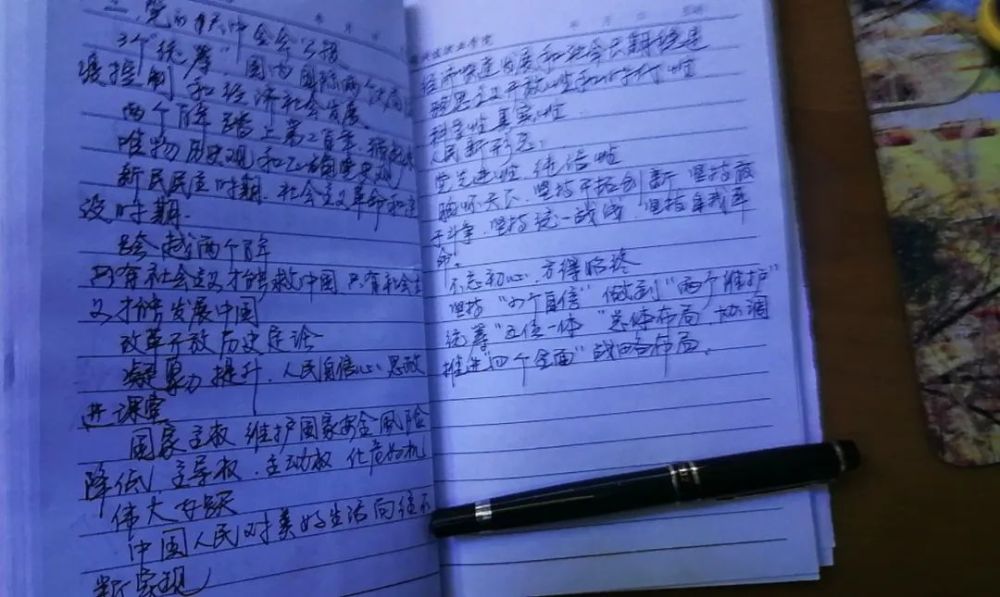 二、党的十九大中全会公报
3个"统筹" 国内国际两个大局
疫控制 和经济社会发展
两个百年 踏上第二百年
唯物历史观和正确党史观
新民民主时期、社会主义革命和建
设时期.
跨越两个百年
只有社会主义才能救中国 只有社会主
义才能发展中国
改革开放历史定论
凝聚力 提升、人民自信心、思政
进课堂
国家主权 维护国家安全风险
降低 主导权、主动权 化危为机
伟大飞跃
中国人民对美好生活向往不
断实现
经济快速发展和社会长期稳定
科学性真实性
人民新形态.
党先进性 纯洁性
胸怀天下、坚持开拓创新 坚持敢
于斗争、坚持统一战线、坚持自我革
命.
不忘初心、方得始终
坚持"四个自信" 做到"两个维护"
统筹"五位一体"总体布局、协调
推进"四个全面"战略布局.